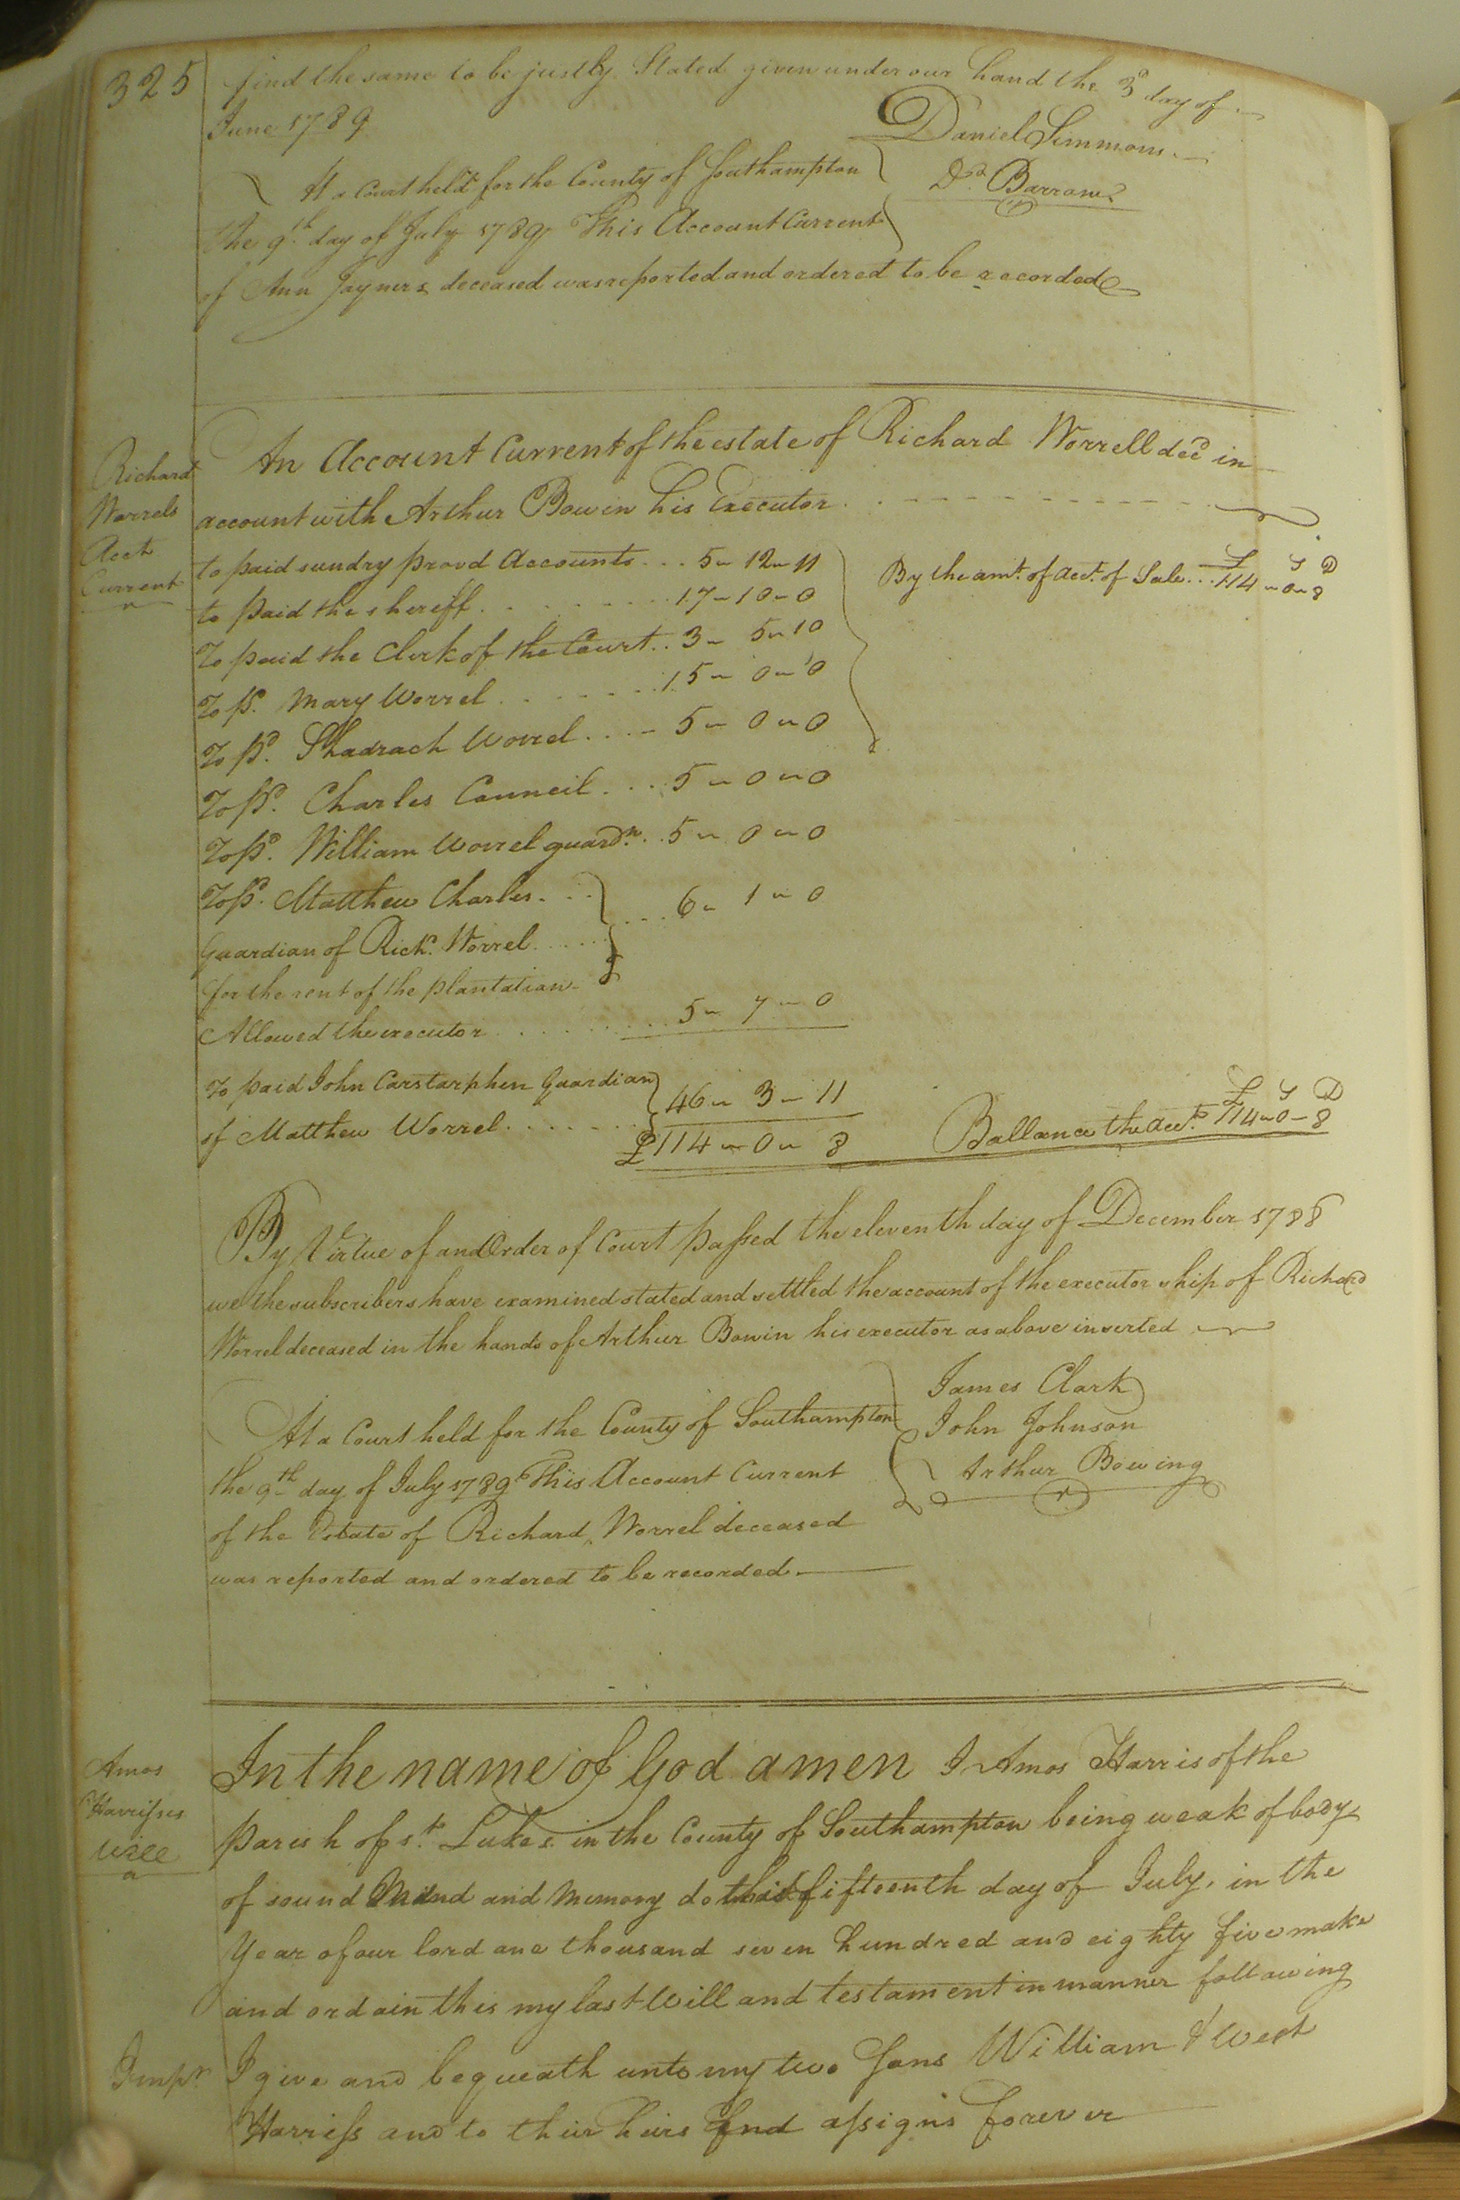 325
find the same to be justly Stated given under our hand the 3d day of
June 1789
Daniel Simmons
Dd. Barrow
At a Court held for the County of Southampton
the 9th day of July 1789 This Account Current
of Ann Jayners deceased was reported and ordered to be recorded
Richard
Worrels
Acct
Current
An Account Current of the estate of Richard Worrell decd in
account with Arthur Bowin his Executor
to paid sundry provd Accounts 5 - 12 - 11
By the amt. of acct. of Sale £ S D 114 - 0 - 8
to paid the sheriff 17 - 10 - 0
To paid the Clerk of the Court 3 - 5 - 10
To pd. Mary Worrel 15 - 0 - 0
To pd. Shadrach Worrel 5 - 0 - 0
To pd. Charles Council 5 - 0 - 0
To pd. William Worrel guardn. 5 - 0 - 0
To pd. Matthew Charles
Guardian of Richd. Worrel 6 - 1 - 0
for the rent of the plantation
Allowed the executor 5 - 7 - 0
To paid John Carstarphen Guardian
of Matthew Worrel 46 - 3 - 11
£114 - 0 - 8
Ballance the acct. £ S D 114 - 0 - 8
By Virtue of and Order of Court passed the eleventh day of December 1788
we the subscribers have examined stated and settled the account of the executor ship of Richard
Worrel deceased in the hands of Arthur Bowin his executor as above inserted
James Clark
John Johnson
Arthur Bowing
At a Court held for the County of Southampton
the 9th day of July 1789 This Account Current
of the Estate of Richard Worrel deceased
was reported and ordered to be recorded
Amos
Harrisses
Will
In the name of God amen I Amos Harris of the
parish of St. Lukes in the County of Southampton being weak of body
of sound Mind and Memory do this fifteenth day of July, in the
Year of our lord one thousand seven hundred and eighty five make
and ordain this my last Will and testament in manner following
Imps. I give and bequeath unto my two Sons William & West
Harriss and to their heirs and assigns forever